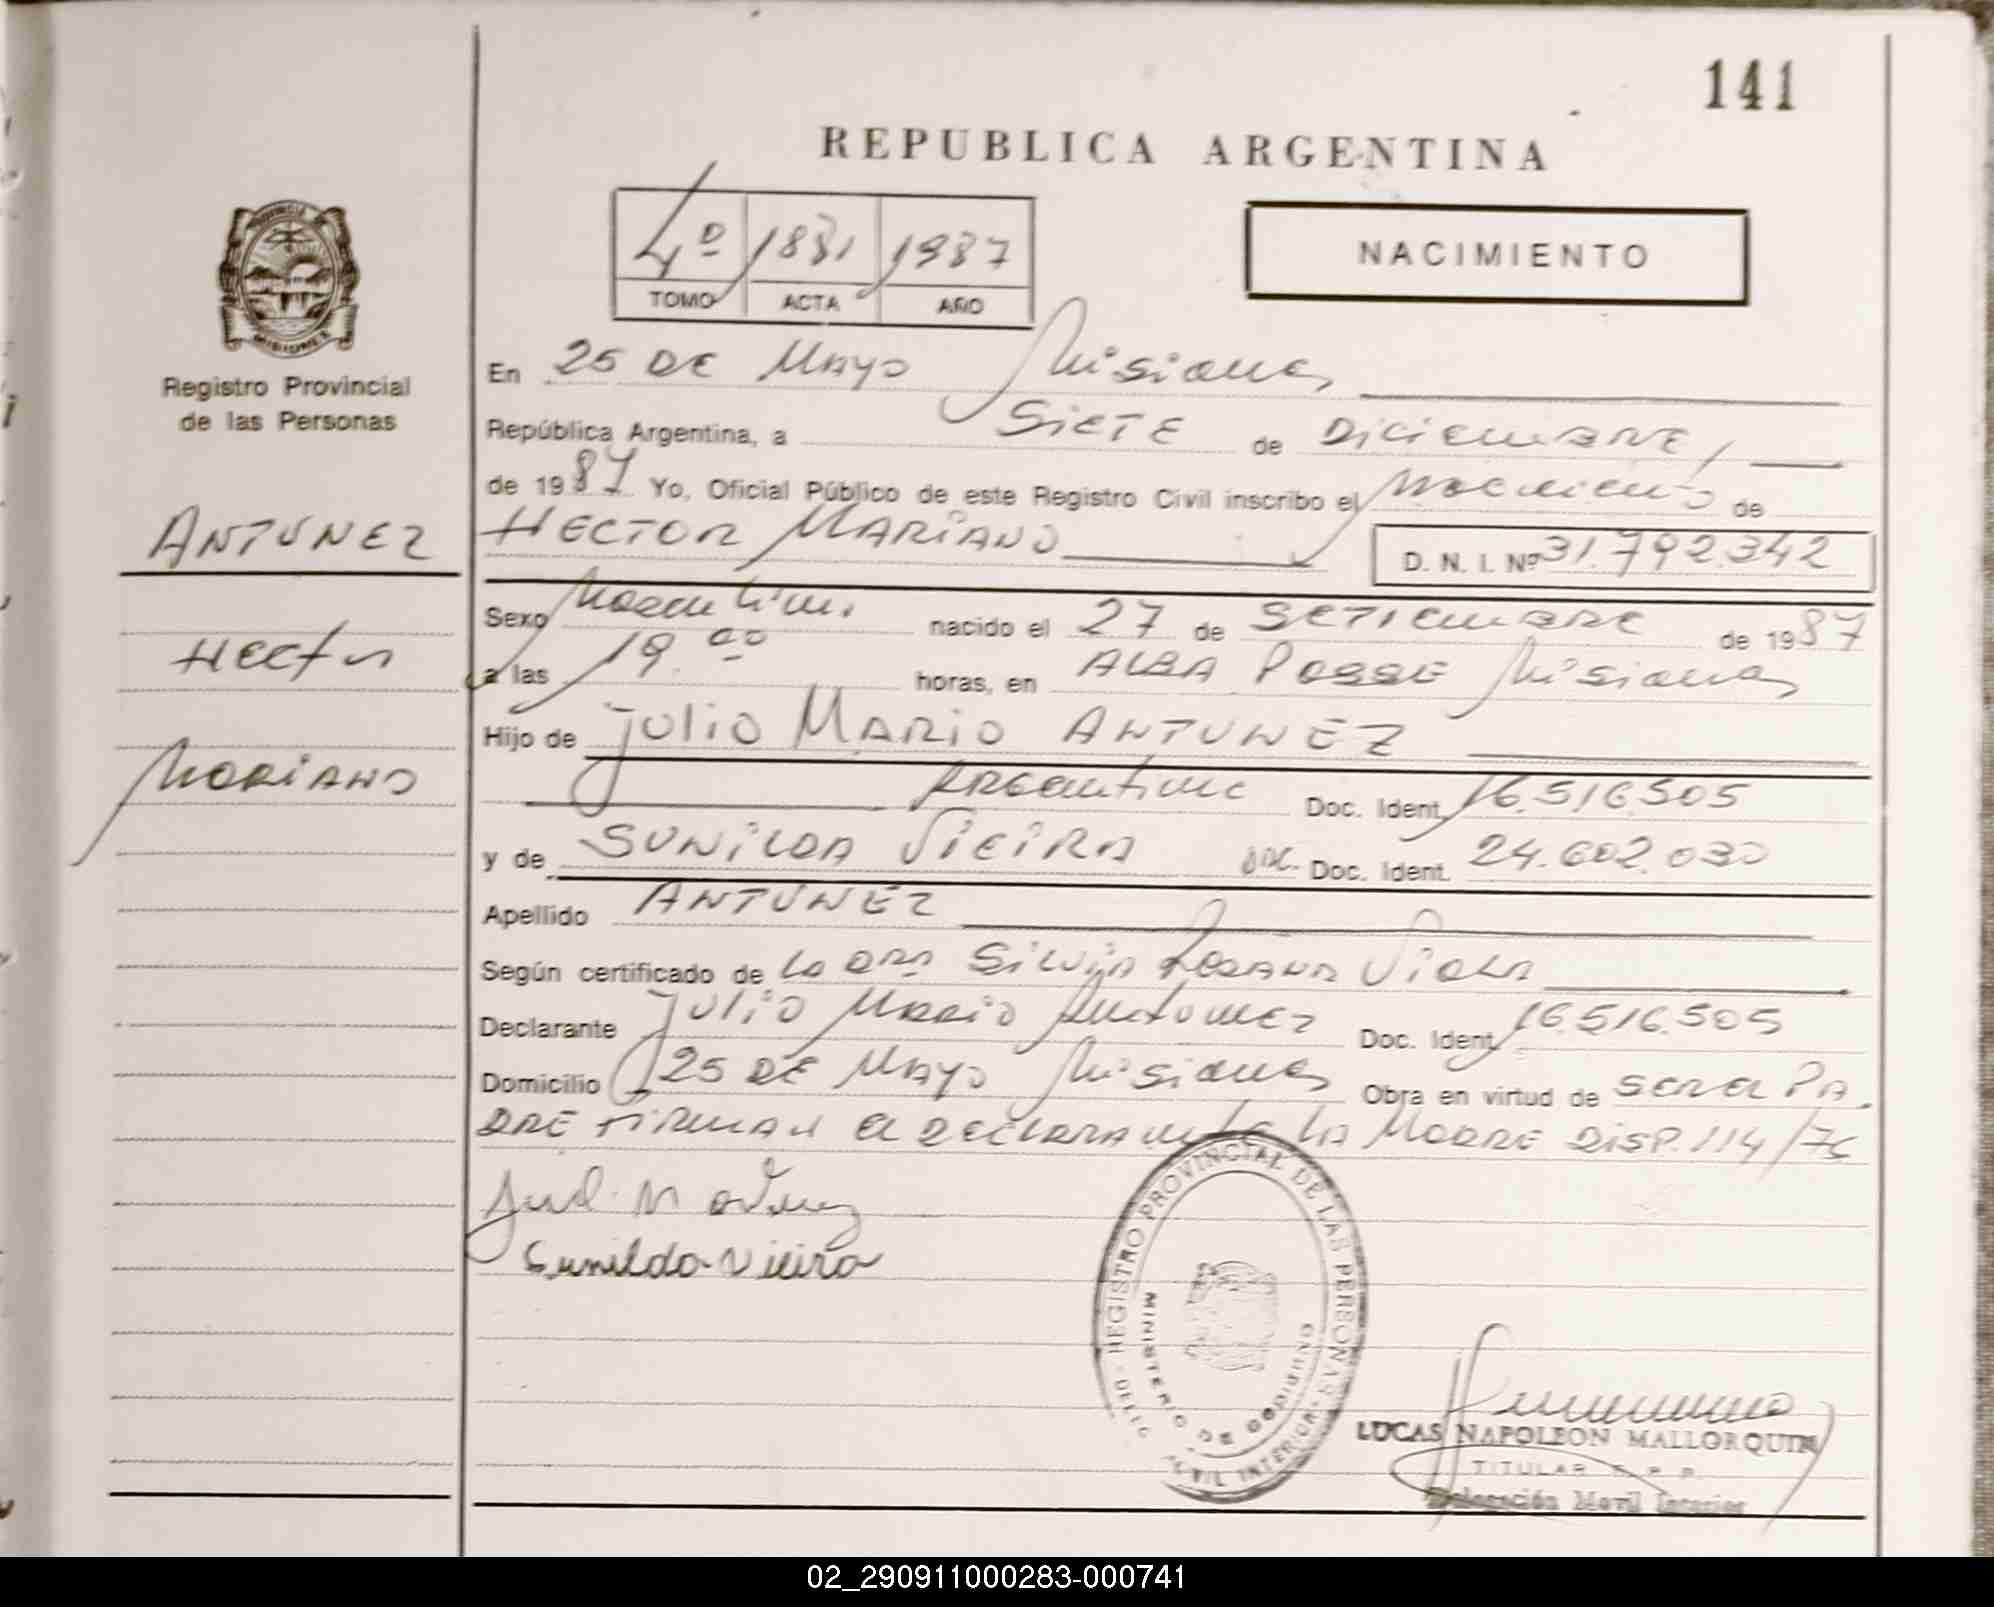 141
REPUBLICA ARGENTINA
4º 1881 1987
TOMO ACTA AÑO
NACIMIENTO
PROVINCIA
MISIONES
Registro Provincial
de las Personas
ANTUNEZ
Hector
MARIANO
En 25 DE MAYO Misiones
República Argentina, a SIETE de DICIEMBRE
de 1987 Yo, Oficial Público de este Registro Civil inscribo el Nacimiento de
HECTOR MARIANO D. N. I. Nº 31.792.342
Sexo Masculino nacido el 27 de SETIEMBRE de 1987
a las 19.00 horas, en ALBA POSSE Misiones
Hijo de Julio MARIO ANTUNEZ
Argentino Doc. Ident. 16.516.505
y de SUNILDA VIEIRA Doc. Ident. 24.602.030
Apellido ANTUNEZ
Según certificado de La DRA SILVIA ROSANA VIOLA
Declarante Julio Mario Antunez Doc. Ident. 16.516.505
Domicilio 25 DE MAYO Misiones Obra en virtud de SER el PA
DRE FIRMAN el DECLARANTE LA MADRE DISP. 114/76
Sunilda Vieira
REGISTRO PROVINCIAL DE LAS PERSONAS
MINISTERIO DE GOBIERNO
CIVIL INTERIOR
LUCAS NAPOLEON MALLORQUIN
TITULAR
Delegación Movil
02_290911000283-000741